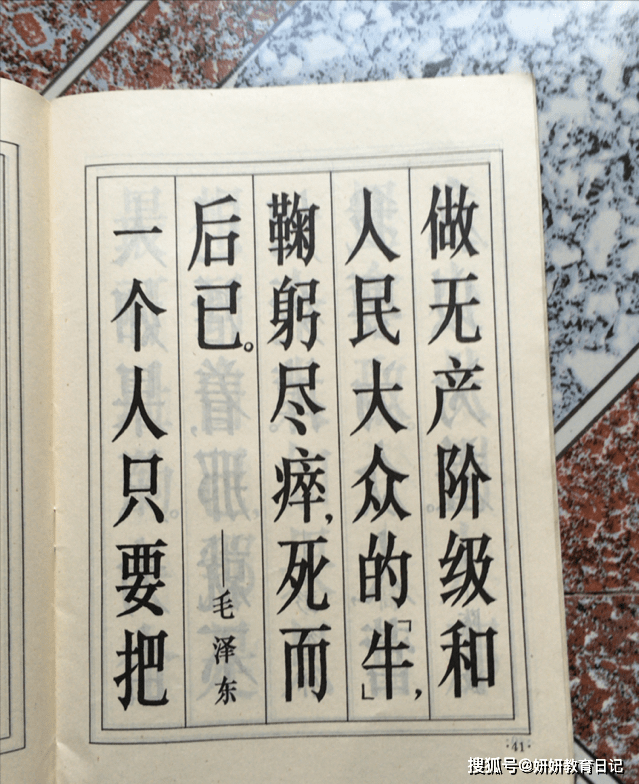 做无产阶级和
人民大众的「牛」，
鞠躬尽瘁，死而
后已。——毛泽东
一个人只要把
·41·
搜狐号@妍妍教育日记